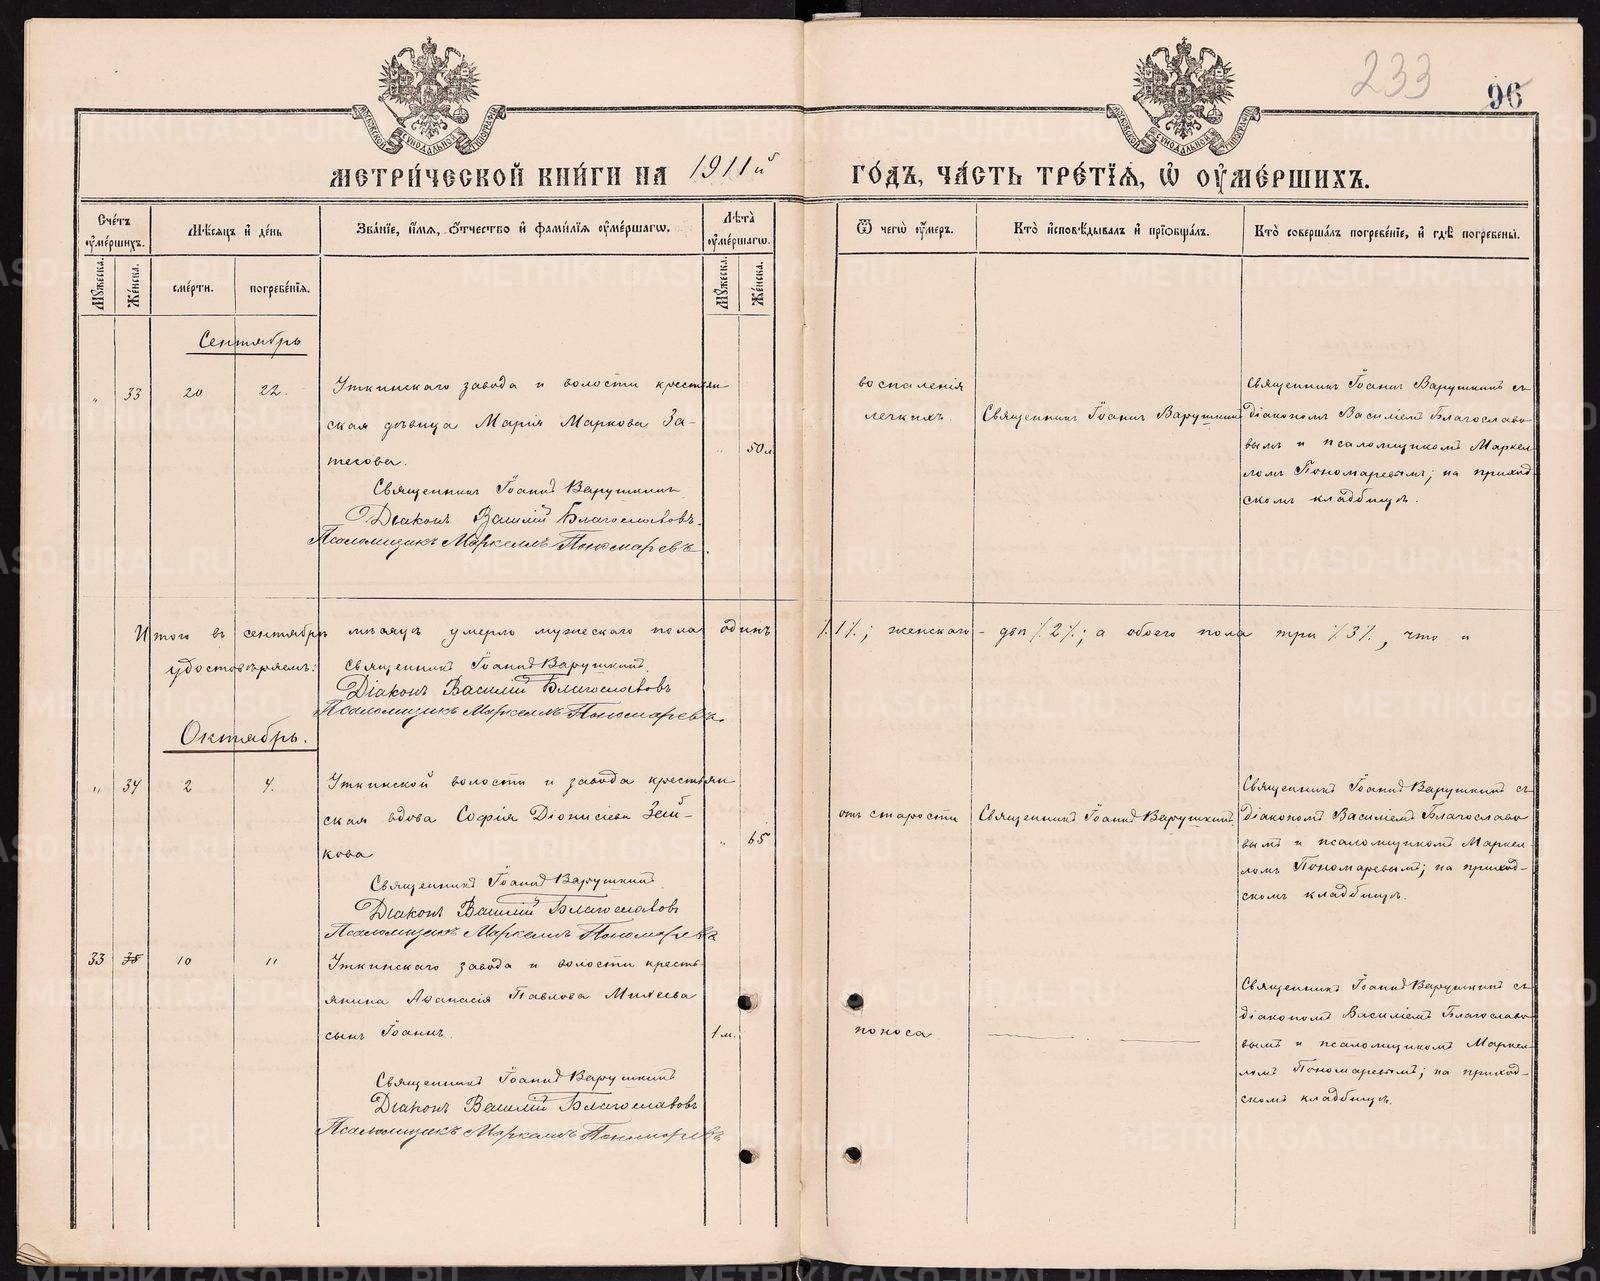 233
96
МЕТРИ́ЧЕСКОЙ КНИ́ГИ НА 1911й ГО́ДЪ, ЧА́СТЬ ТРЕ́ТІѦ, Ѡ ОУ҆МЕ́РШИХЪ.
Сче́тъ оу҆ме́ршихъ.
Мѣ́сяцъ и҆ де́нь
Зва́нїе, и҆́мѧ, ѻ҆́тчество и҆ фами́лїѧ оу҆ме́ршагѡ.
Лѣ́та оу҆ме́ршагѡ.
Ѿ чегѡ̀ оу҆́меръ.
Кто̀ и҆сповѣ́дывалъ и҆ прїѻбща́лъ.
Кто̀ соверша́лъ погребе́нїе, и҆ гдѣ̀ погребены̀.
Мꙋ́жеска.
Же́нска.
сме́рти.
погребе́нїѧ.
Мꙋ́жеска.
Же́нска.
Сентябрь
" 33 20 22.
Уткинскаго завода и волости крестьян
ская дѣвица Марія Маркова За-
тесова.
" 50 л.
Священникъ Іоаннъ Варушкинъ
Діаконъ Василій Благославовъ.
Псаломщикъ Маркеллъ Пономаревъ.
воспаленія
легкихъ.
Священникъ Іоаннъ Варушкинъ
Священникъ Іоаннъ Варушкинъ съ
діакономъ Василіемъ Благославо
вымъ и псаломщикомъ Маркел-
ломъ Пономаревымъ; на приход-
скомъ кладбищѣ.
Итого въ сентябрѣ мѣсяцѣ умерло мужескаго пола одинъ /.1%; женскаго - двѣ /.2%; а обоего пола три /.3%, что и
удостовѣряемъ: Священникъ Іоаннъ Варушкинъ
Діаконъ Василій Благославовъ
Псаломщикъ Маркеллъ Пономаревъ.
Октябрь.
" 34 2 4.
Уткинской волости и завода крестьян
ская вдова Софія Діонисіева Зей-
кова
" 65
Священникъ Іоаннъ Варушкинъ
Діаконъ Василій Благославовъ
Псаломщикъ Маркеллъ Пономаревъ
отъ старости
Священникъ Іоаннъ Варушкинъ
Священникъ Іоаннъ Варушкинъ съ
діакономъ Василіемъ Благославо
вымъ и псаломщикомъ Маркел-
ломъ Пономаревымъ; на приход-
скомъ кладбищѣ.
33 35 10 11
Уткинскаго завода и волости кресть-
янина Аѳанасія Павлова Михеева
сынъ Іоаннъ.
1 м.
Священникъ Іоаннъ Варушкинъ
Діаконъ Василій Благославовъ
Псаломщикъ Маркеллъ Пономаревъ
поноса
Священникъ Іоаннъ Варушкинъ съ
діакономъ Василіемъ Благославо
вымъ и псаломщикомъ Маркел-
ломъ Пономаревымъ; на приход-
скомъ кладбищѣ.
METRIKI.GASO-URAL.RU